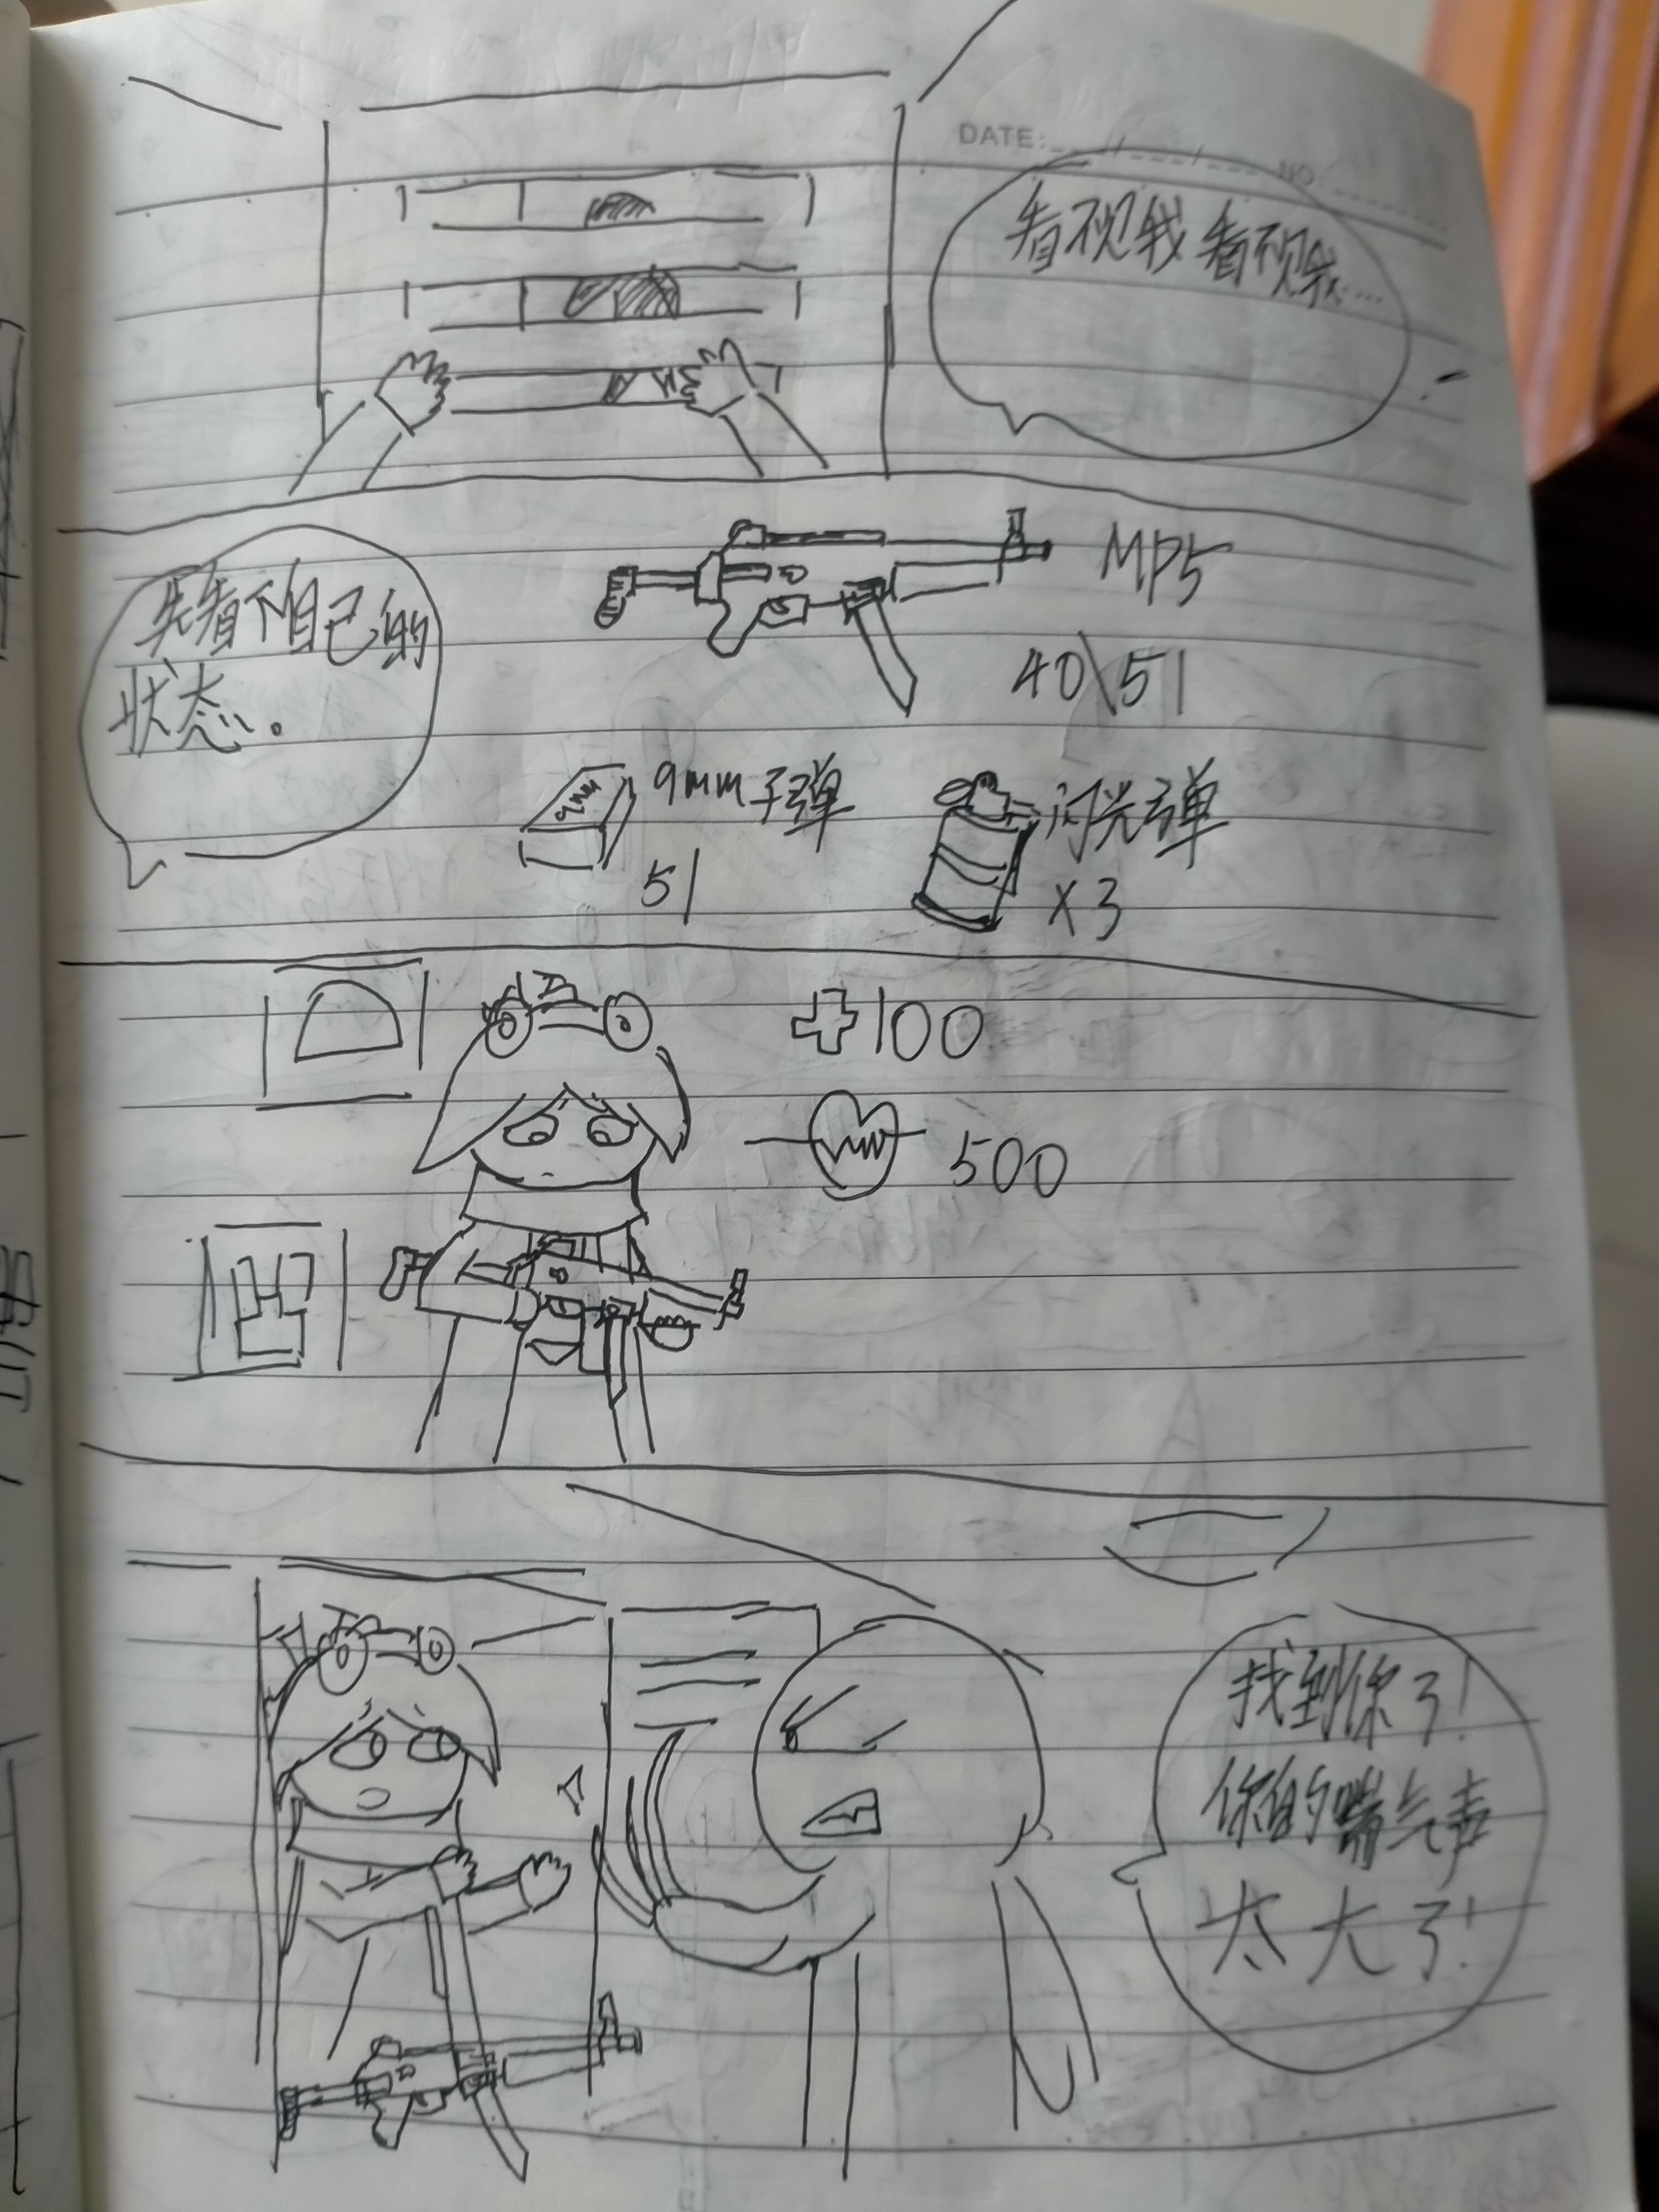 DATE:
NO
看不见我 看不见我……
先看下自己的
状态。
MP5
40\51
9mm
9mm子弹
51
闪光弹
X3
100
500
找到你了!
你的喘气声
太大了!